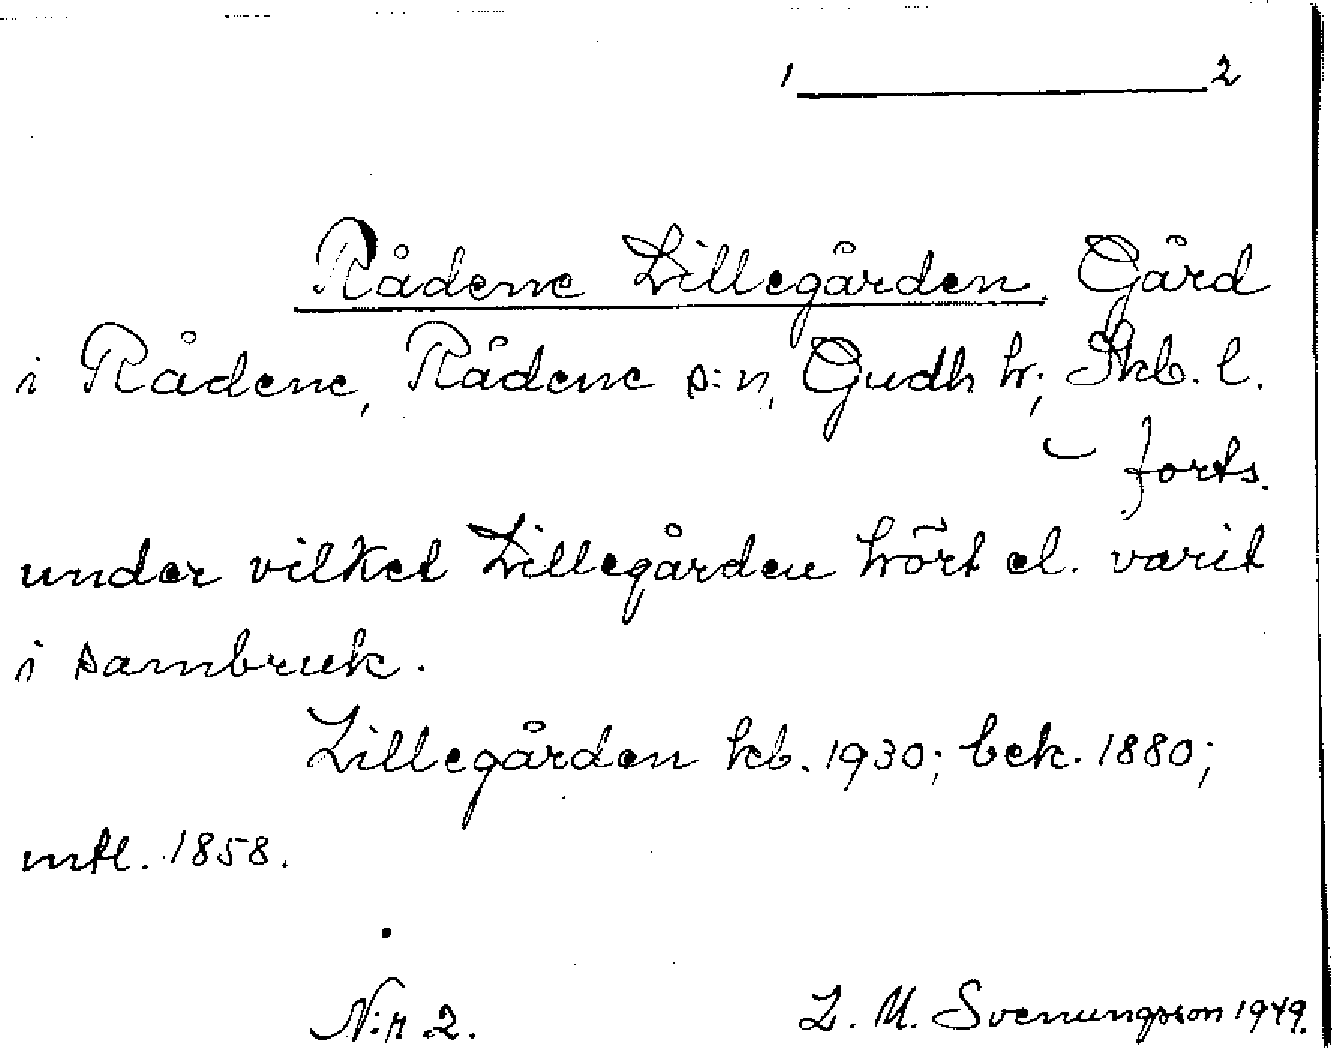 1 2
Rådene Lillegården Gård
i Rådene, Rådene s:n, Gudh. hr; Skb. l.
forts.
under vilket Lillegården hört el. varit
i sambruk.
Lillegården kb. 1930; bek. 1880;
mtl. 1858.
N:r 2. L. M. Svenungsson 1949.